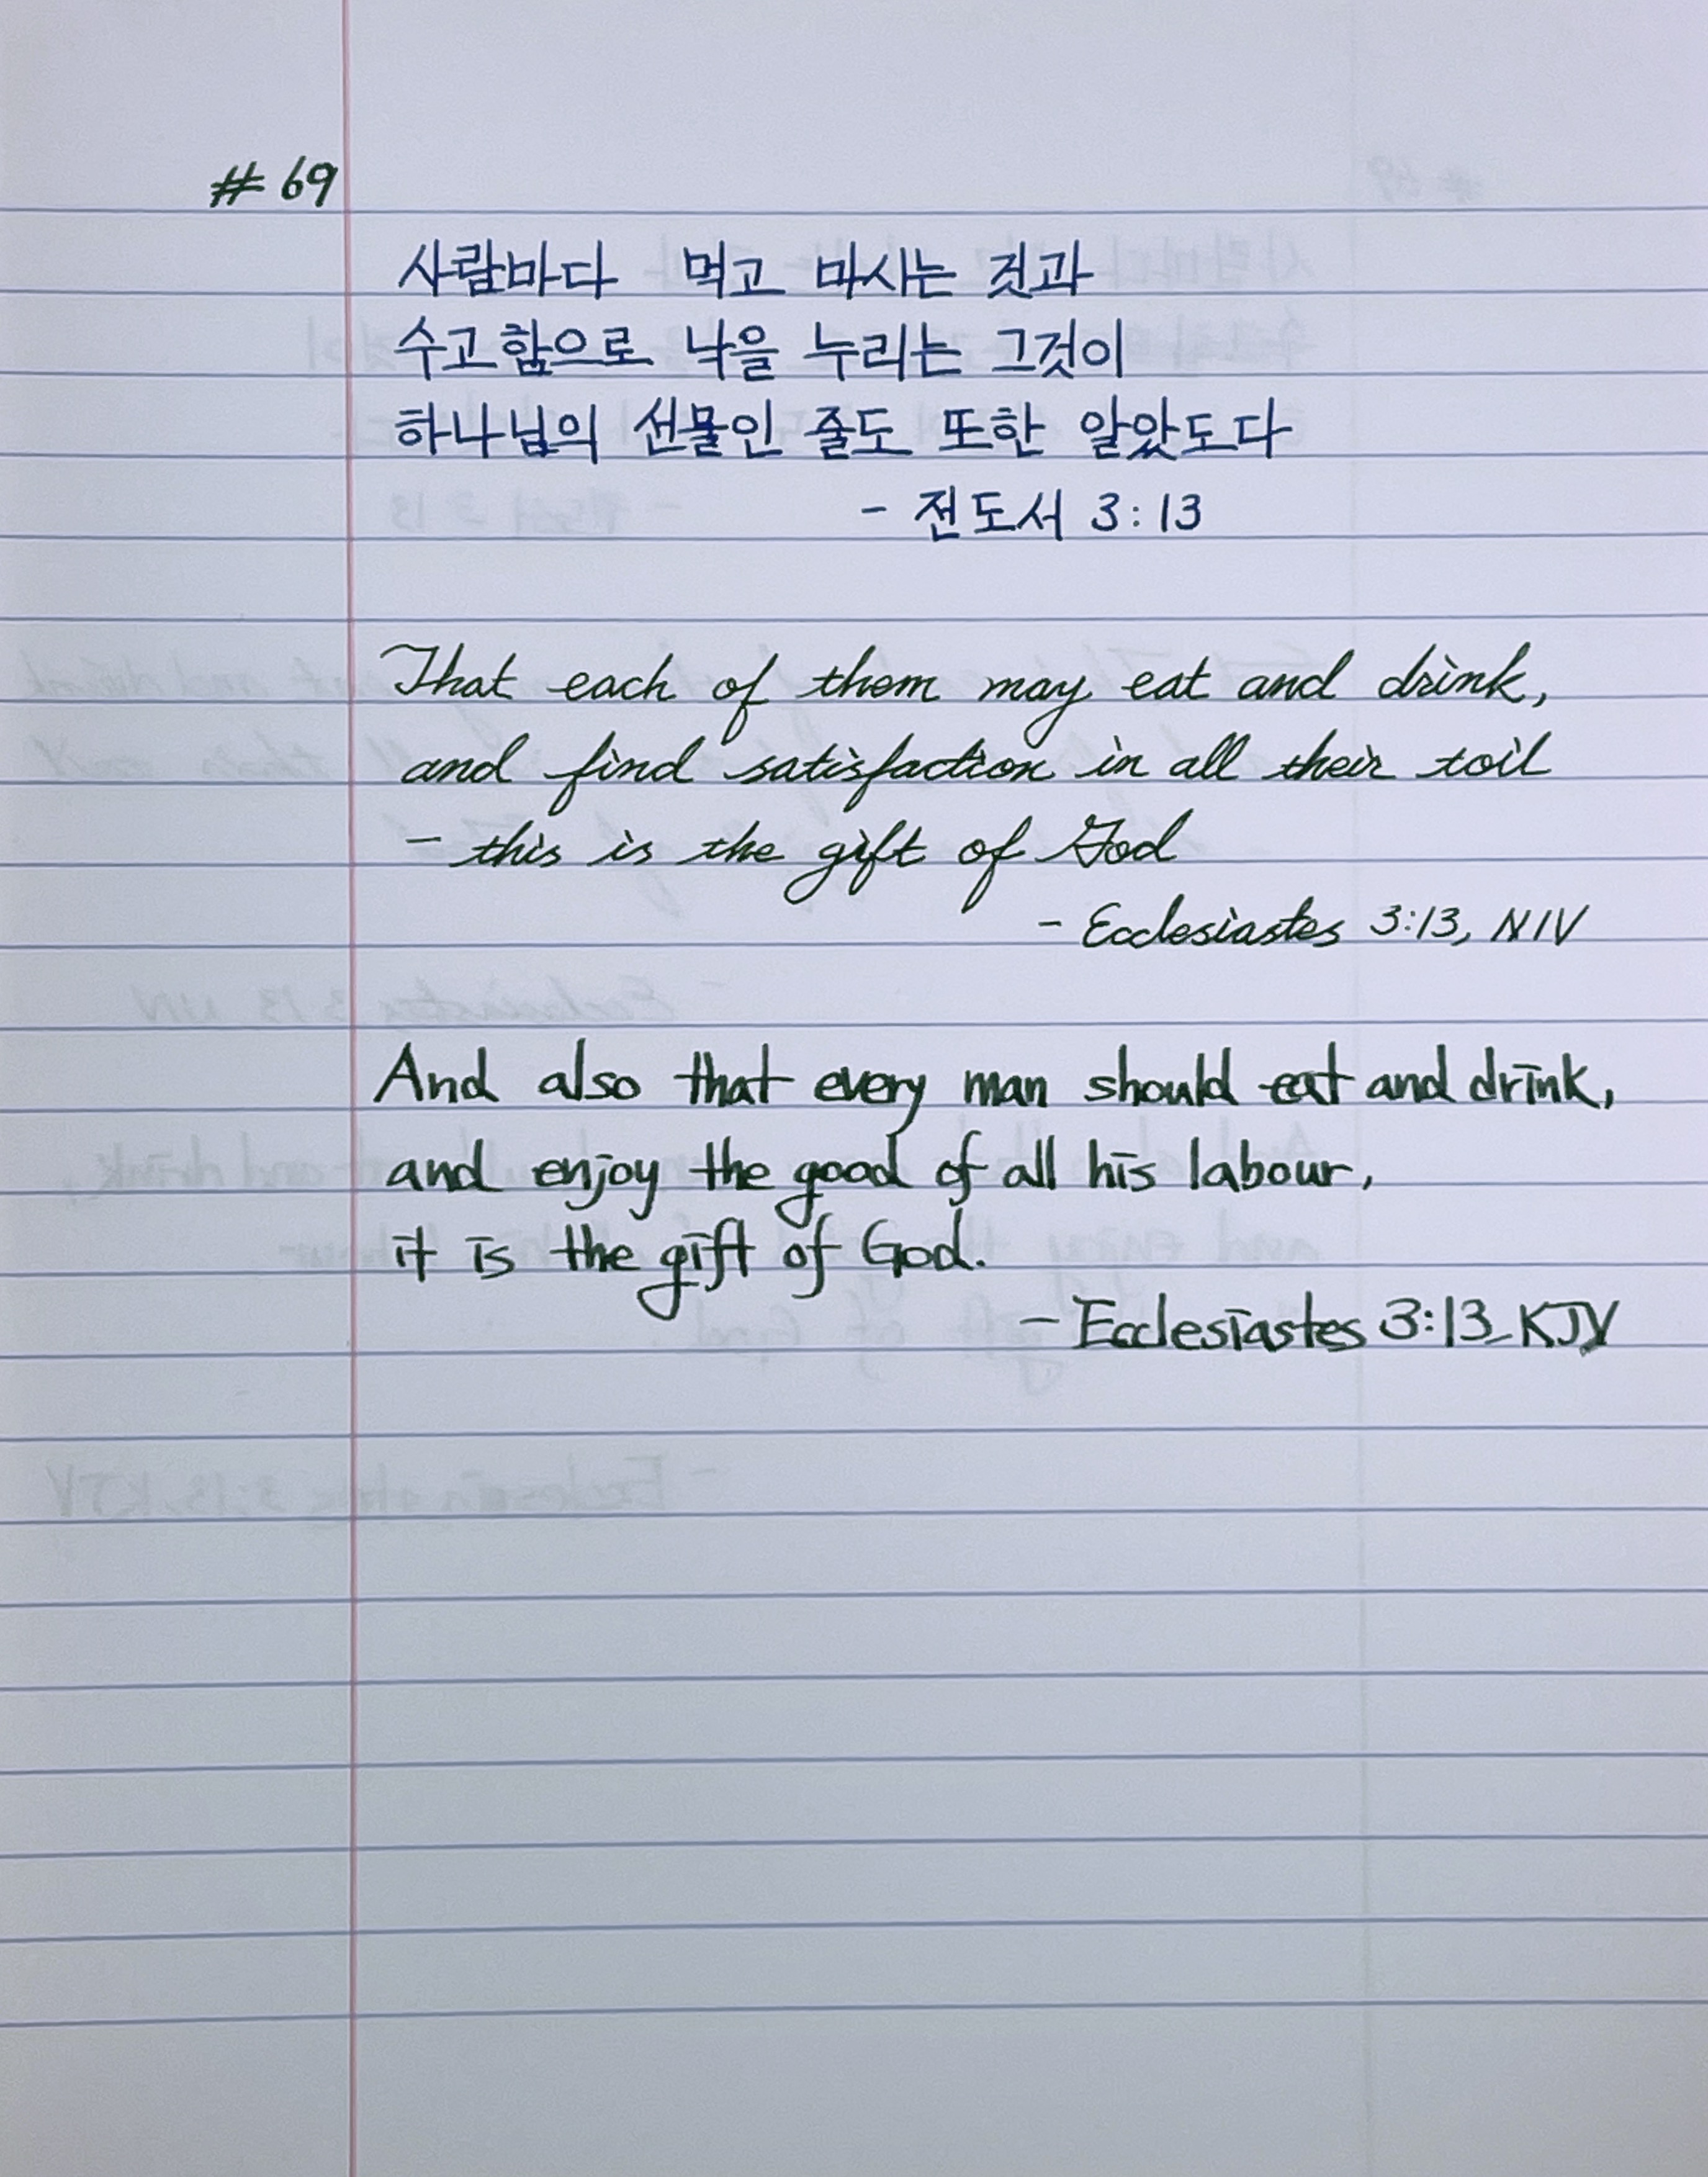 # 69
사람바다 먹고 마시는 것과
수고함으로 낙을 누리는 그것이
하나님의 선물인 줄도 또한 알았도다
- 전도서 3:13
That each of them may eat and drink,
and find satisfaction in all their toil
- this is the gift of God
- Ecclesiastes 3:13, NIV
And also that every man should eat and drink,
and enjoy the good of all his labour,
it is the gift of God.
- Ecclesiastes 3:13, KJV